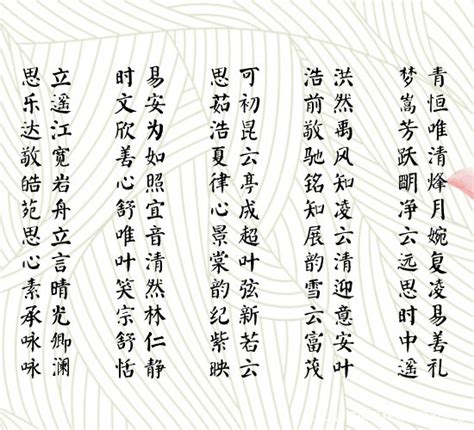 青恒唯清烽月婉复凌易善礼
梦嵩芳跃朙净云远思时中遥
洪然禹风知凌云清迎意安叶
浩前敬驰铭知展韵雪云富茂
可初昆云亭成超叶弦新若云
思茹浩夏律心景棠韵纪紫映
易安为如照宜音清然林仁静
时文欣善心舒唯叶笑宗舒恬
立遥江宽岩舟立言晴光卿澜
思乐达敬皓苑思心素承咏咏